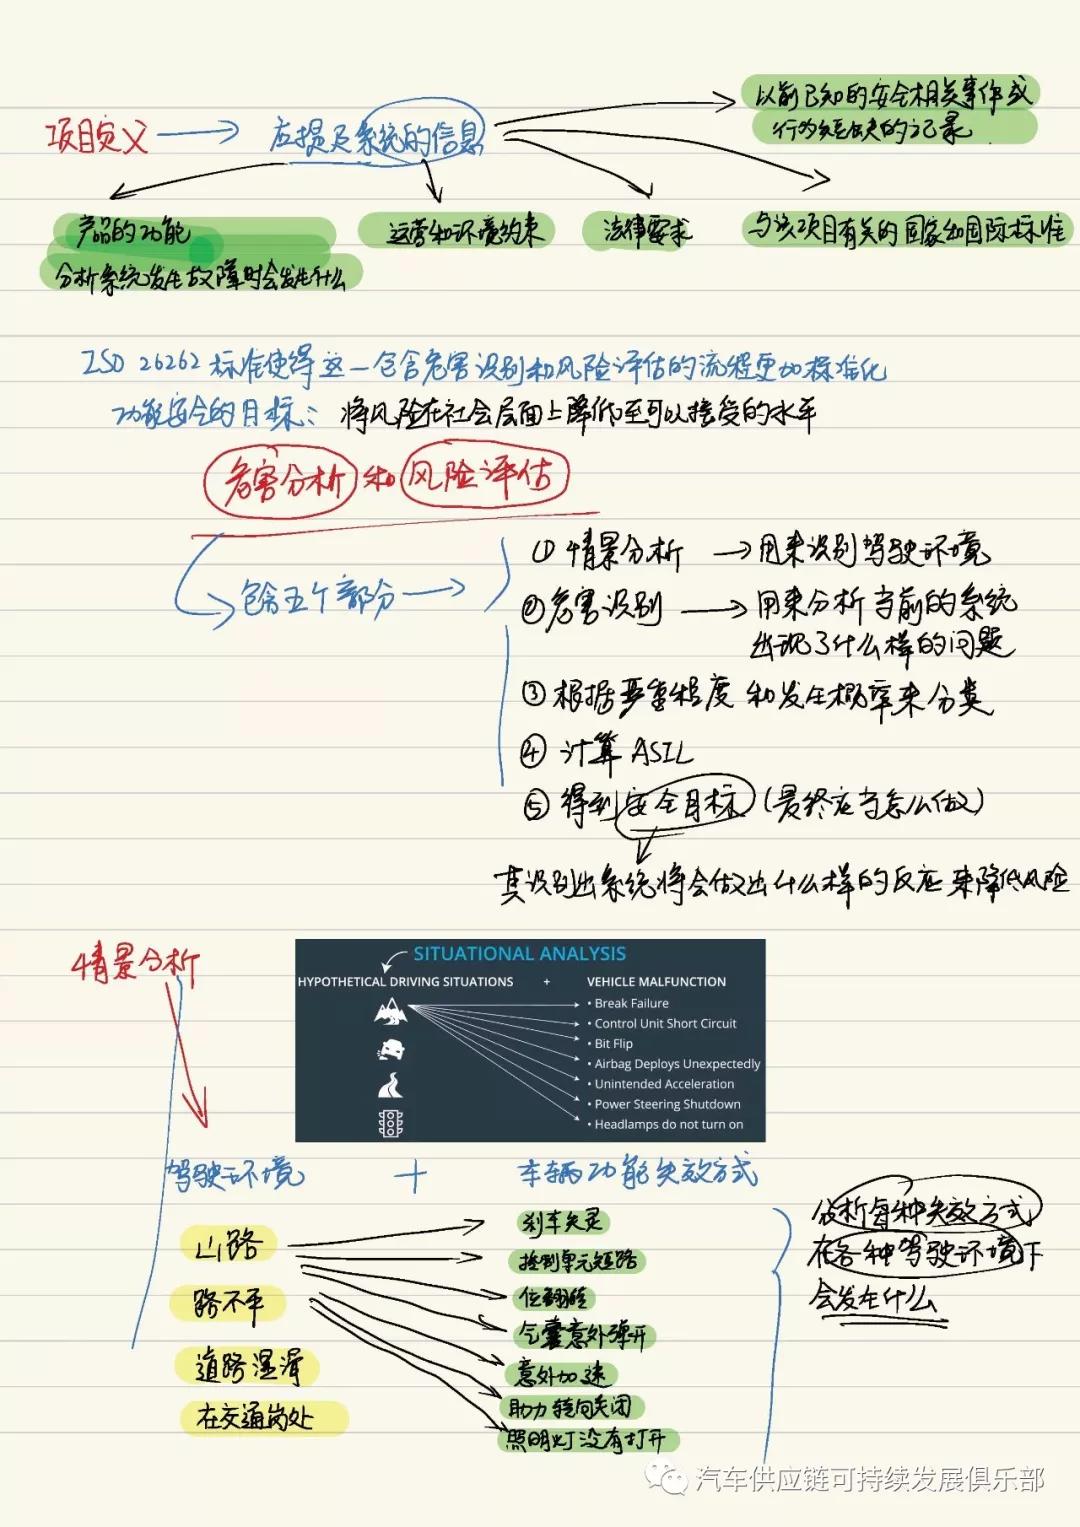 项目定义 → 应提及系统的信息
以前已知的安全相关事件或
行为缺陷的记录
产品的功能
分析系统发生故障时会发生什么
运营和环境约束
法律要求
与该项目有关的国家和国际标准
ISO 26262 标准使得这一包含危害识别和风险评估的流程更加标准化
功能安全的目标: 将风险在社会层面上降低至可以接受的水平
危害分析 和 风险评估
包含五个部分 →
① 情景分析 → 用来识别驾驶环境
② 危害识别 → 用来分析当前的系统
出现了什么样的问题
③ 根据严重程度 和发生概率来分类
④ 计算 ASIL
⑤ 得到安全目标 (最终应当怎么做)
其识别出系统将会做出什么样的反应来降低风险
情景分析
SITUATIONAL ANALYSIS
HYPOTHETICAL DRIVING SITUATIONS + VEHICLE MALFUNCTION
• Break Failure
• Control Unit Short Circuit
• Bit Flip
• Airbag Deploys Unexpectedly
• Unintended Acceleration
• Power Steering Shutdown
• Headlamps do not turn on
驾驶环境 + 车辆功能失效方式
山路
路不平
道路湿滑
在交通岗处
刹车失灵
控制单元短路
位翻转
气囊意外弹开
意外加速
助力转向关闭
照明灯没有打开
分析每种失效方式
在各种驾驶环境下
会发生什么
汽车供应链可持续发展俱乐部